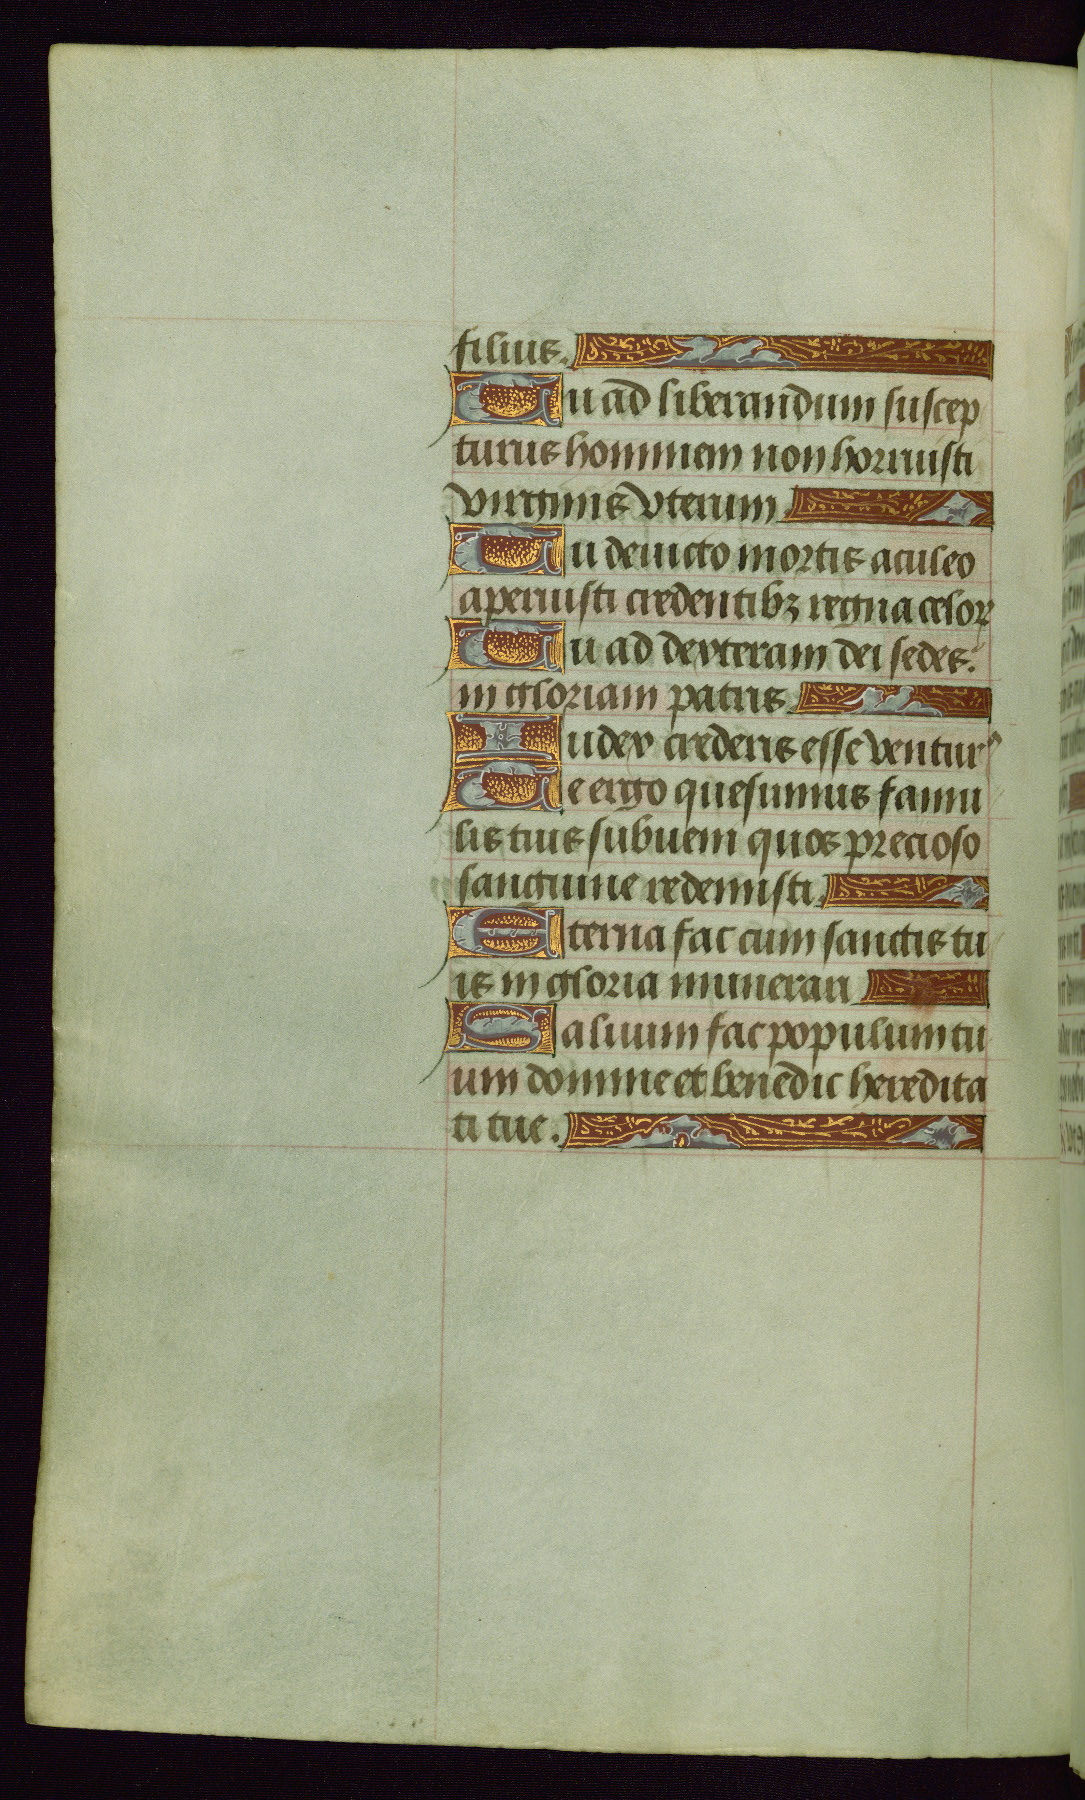 filius.
Tu ad liberandum suscep
turus hominem non horruisti
virginis vterum.
Tu deuicto mortis aculeo
aperuisti credentibꝫ regna celoꝝ
Tu ad dexteram dei sedes.
in gloriam patris
Iudex crederis esse venturꝰ
Te ergo quesumus famu
lis tuis subueni quos precioso
sanguine redemisti.
Eterna fac cum sanctis tu
is in gloria munerari
Saluum fac populum tu
um domine et benedic heredita
ti tue.